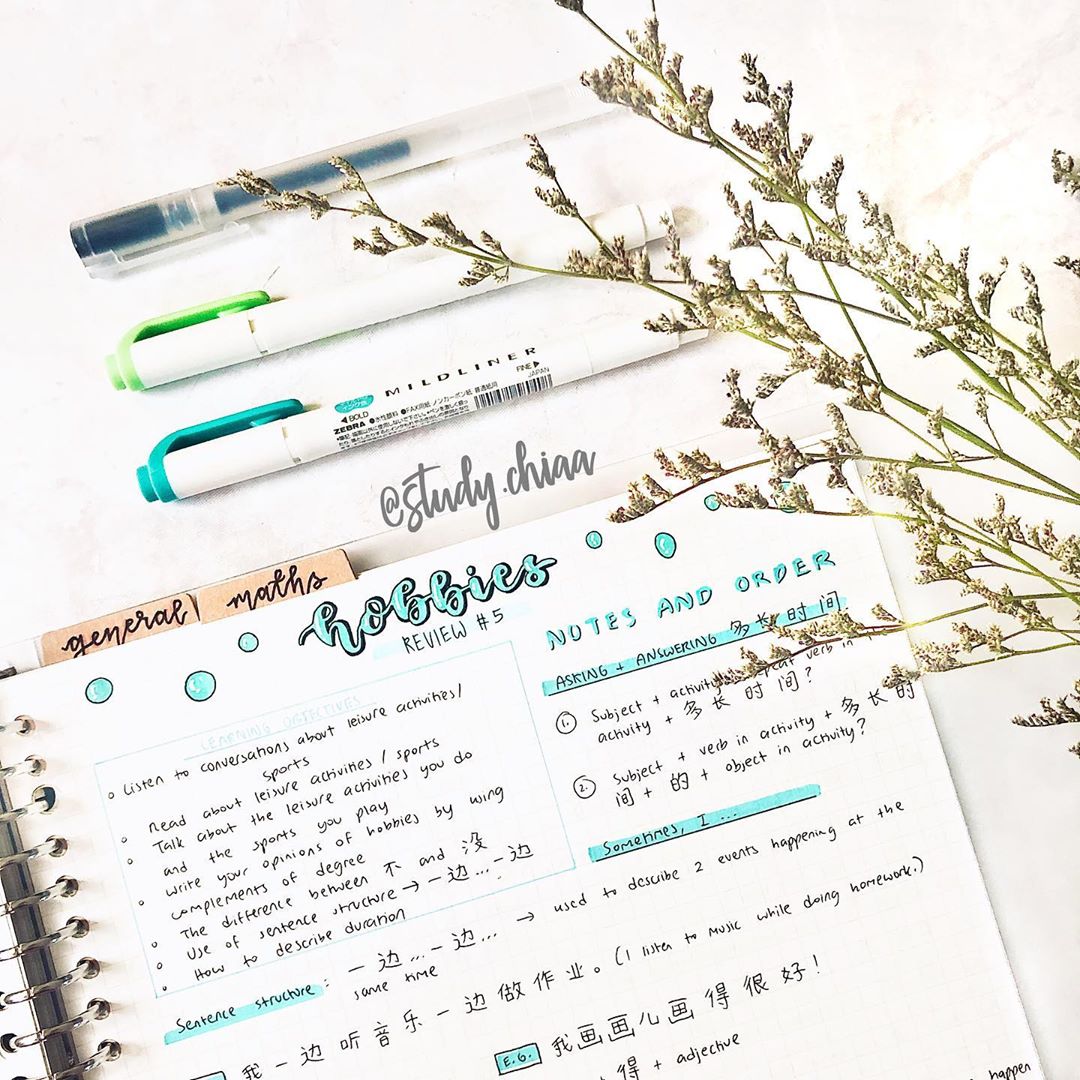 MILDLINER
BOLD
FINE
ZEBRA
JAPAN
@study.chiaa
general
maths
hobbies
REVIEW #5
LEARNING OBJECTIVES
Listen to conversations about leisure activities/
sports
Read about leisure activities / sports
Talk about the leisure activities you do
and the sports you play
write your opinions of hobbies by wing
complements of degree
The difference between 不 and 没
Use of sentence structure → 一边...一边
How to describe duration
NOTES AND ORDER
ASKING + ANSWERING 多长时间
1. Subject + activity verb in
activity + 多长时间?
2. Subject + verb in activity + 多长的
间 + 的 + object in activity?
Sometimes, I ...
Sentence structure: 一边...一边... → used to describe 2 events happening at the
same time
我一边听音乐一边做作业。(I listen to music while doing homework.)
E.G. 我画画儿画得很好!
得 + adjective
happen